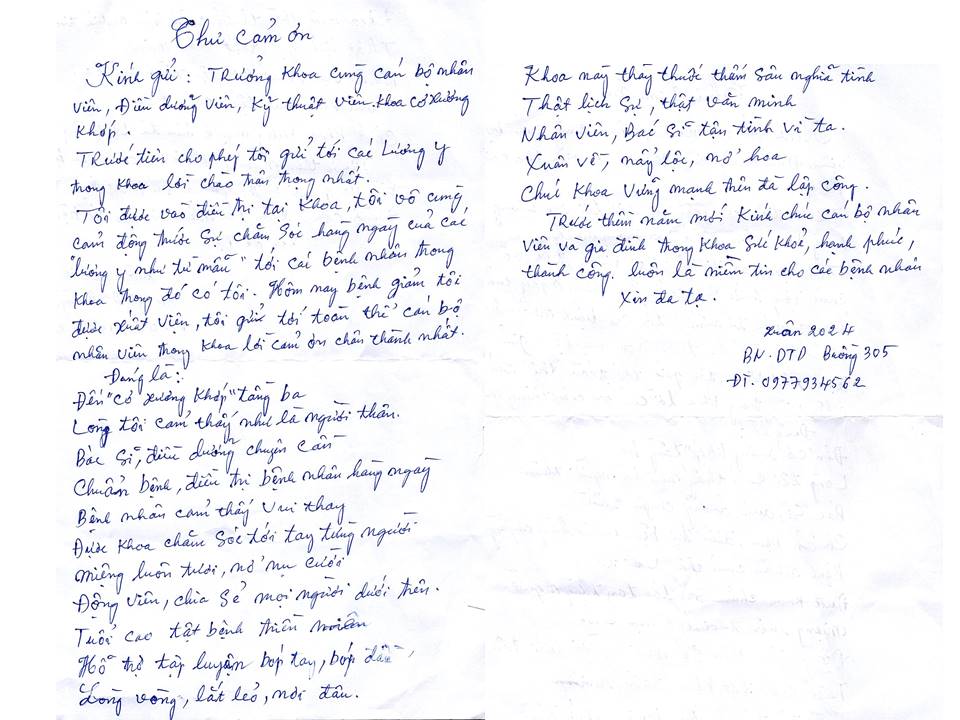 Thư cảm ơn
Kính gửi: Trưởng Khoa cùng cán bộ nhân
viên, Điều dưỡng viên, Kỹ thuật viên Khoa Cơ xương
Khớp.
Trước tiên cho phép tôi gửi tới các Lương y
trong Khoa lời chào trân trọng nhất.
Tôi được vào điều trị tại Khoa, tôi vô cùng
cảm động trước sự chăm sóc hàng ngày của các
"lương y như từ mẫu" tới các bệnh nhân trong
Khoa trong đó có tôi. Hôm nay bệnh giảm tôi
được xuất viện, tôi gửi tới toàn thể cán bộ
nhân viên trong Khoa lời cảm ơn chân thành nhất.
Đúng là:
Đến "Cơ xương Khớp" tầng ba
Lòng tôi cảm thấy như là người thân.
Bác sĩ, điều dưỡng chuyên cần
Chuẩn bệnh, điều trị bệnh nhân hàng ngày
Bệnh nhân cảm thấy vui thay
Được Khoa chăm sóc tới tay từng người
Miệng luôn tươi, nở nụ cười
Động viên, chia sẻ mọi người dưới trên.
Tuổi cao tật bệnh triền miên
Hỗ trợ tập luyện bóp tay, bóp đầu,
Long vòng, lắt léo, nơi đâu.
Khoa này thầy thuốc thấm sâu nghĩa tình
Thật lịch sự, thật văn minh
Nhân viên, Bác sĩ tận tình vì ta.
Xuân về, nảy lộc, nở hoa
Chúc Khoa vững mạnh trên đà lập công.
Trước thềm năm mới Kính chúc cán bộ nhân
viên và gia đình trong Khoa sức khoẻ, hạnh phúc,
thành công. luôn là niềm tin cho các bệnh nhân
Xin đa tạ.
Xuân 2024
BN. DTD Buồng 305
ĐT. 0977934562